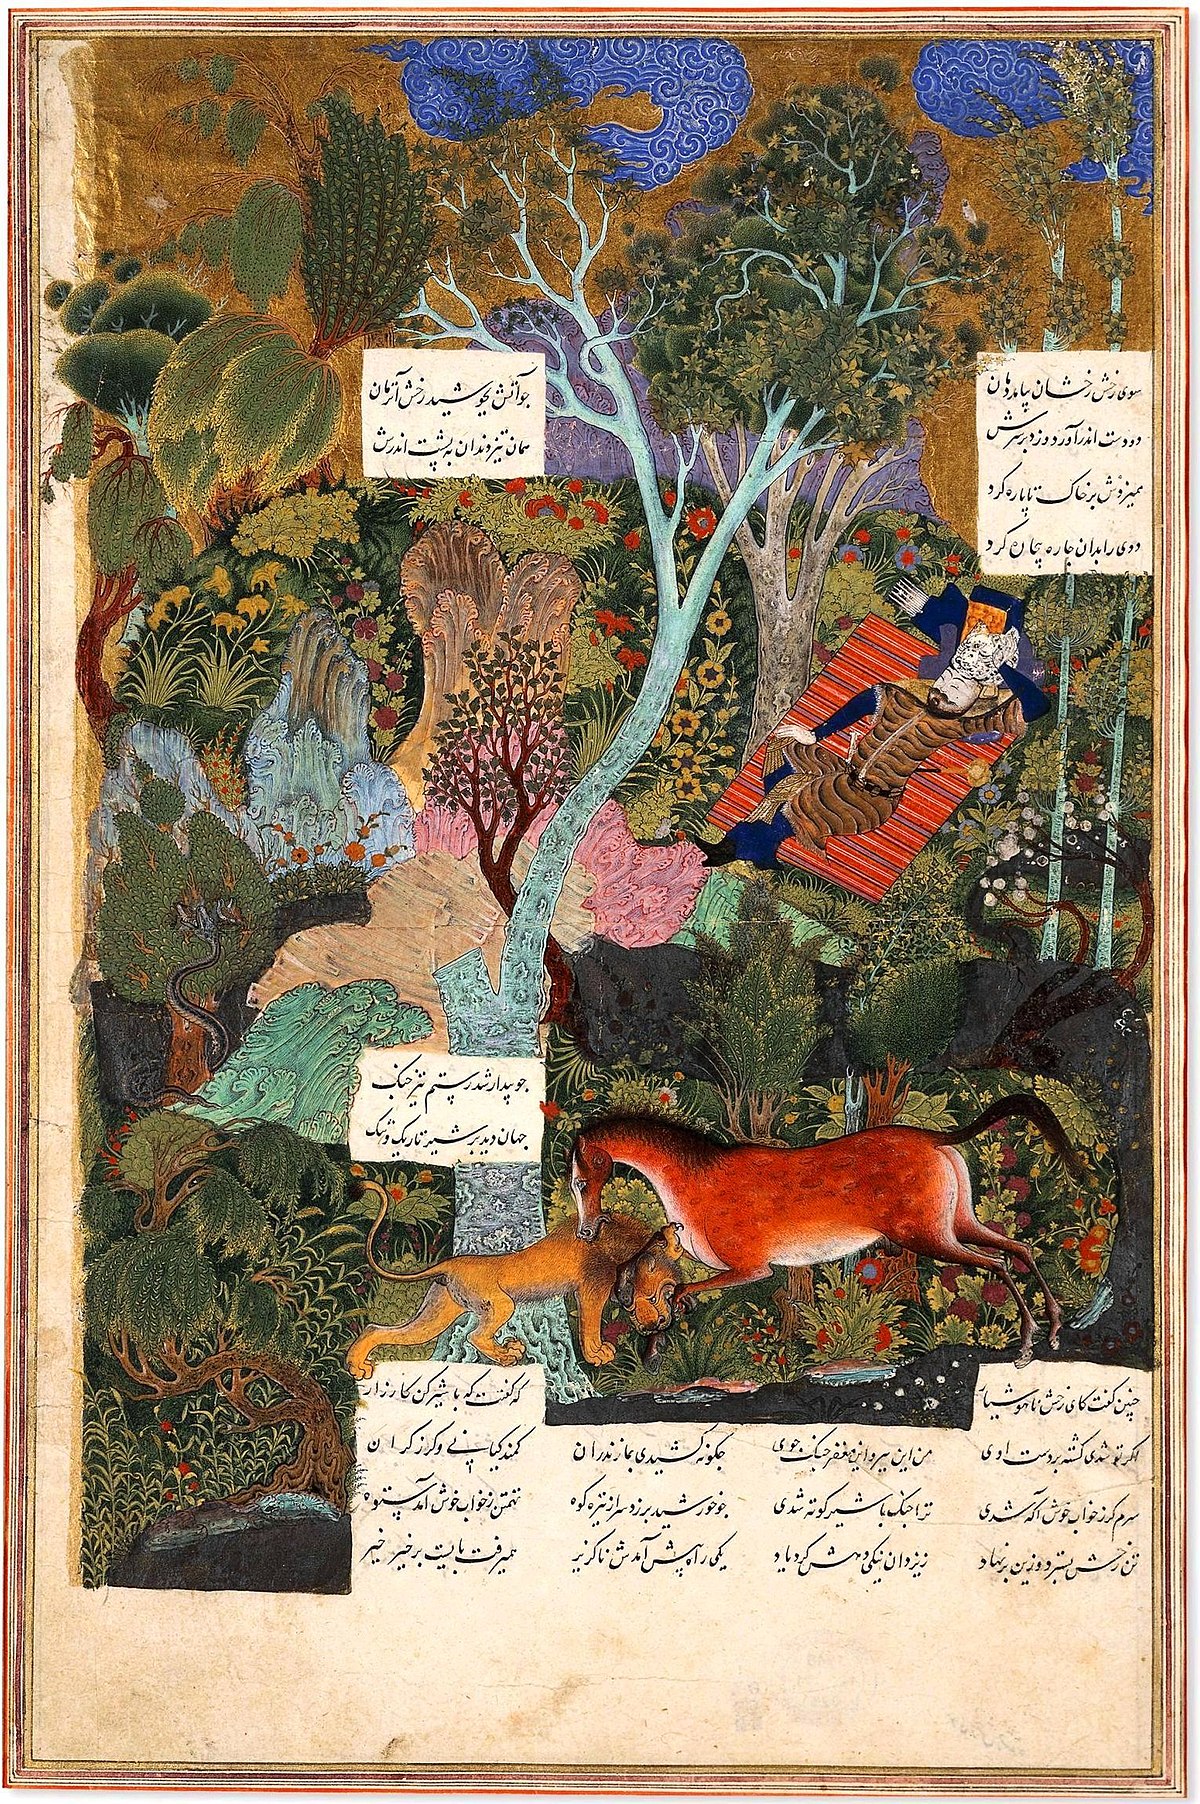 سوی رخش رخشان بیامد دمان
چو آتش بجوشید رخش آنزمان
دو دست اندر آورد و زد بر سرش
همان تیز دندان به پشت اندرش
همیزدش بر خاک تا پاره کرد
ددی را بدان چاره بیچاره کرد
چو بیدار شد رستم تیز چنگ
جهان دید بر شیر تاریک و تنگ
چنین گفت کای رخش ناهوشیار که گفتت که با شیر کن کارزار
اگر تو شدی کشته بر دست اوی من این ببر و این مغفر جنگ جوی چگونه کشیدی بمازندران کمند کیانی و گرز گران
سرم گر ز خواب خوش آگه شدی ترا جنگ با شیر کوته شدی چو خورشید برزد سر از تیره کوه تهمتن ز خواب خوش آمد ستوه
تن رخش بسترد و زین برنهاد ز یزدان نیکی دهش کرد یاد یکی راه پیش آمدش ناگزیر همیرفت بایست بر خیر خیر